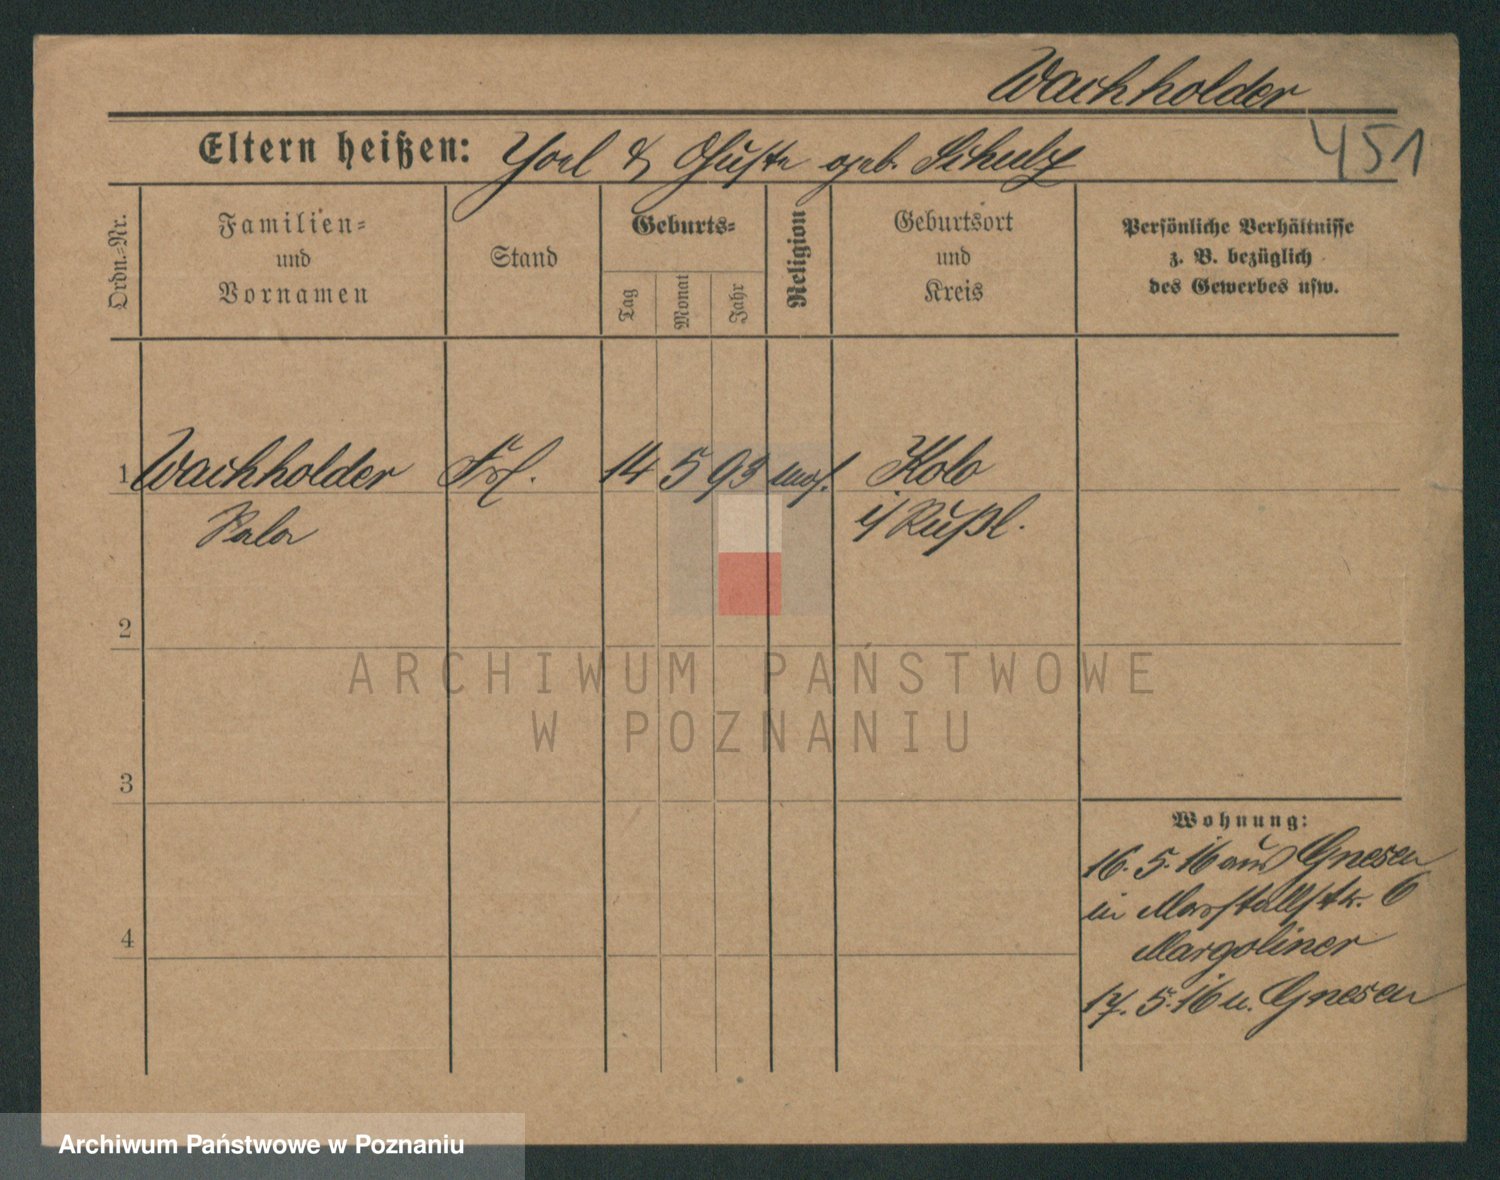 Wachholder
451
Eltern heißen: Joel & Guste geb. Schulz
Ordn.-Nr.
Familien-
und
Vornamen
Stand
Geburts-
Tag
Monat
Jahr
Religion
Geburtsort
und
Kreis
Persönliche Verhältnisse
z. B. bezüglich
des Gewerbes usw.
1 Wachholder Frl. 14 5 93 mos. Kolo
i/Rußl.
2
3
4
Wohnung:
16. 5. 16 aus Gnesen
in Marstallstr. 6
Margoliner
17. 5. 16 n. Gnesen
ARCHIWUM PAŃSTWOWE
W POZNANIU
Archiwum Państwowe w Poznaniu